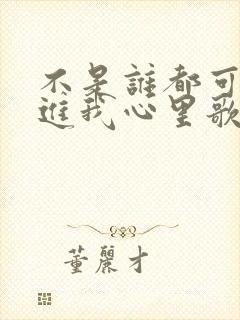 不是誰都可
進我心里歌
董麗才